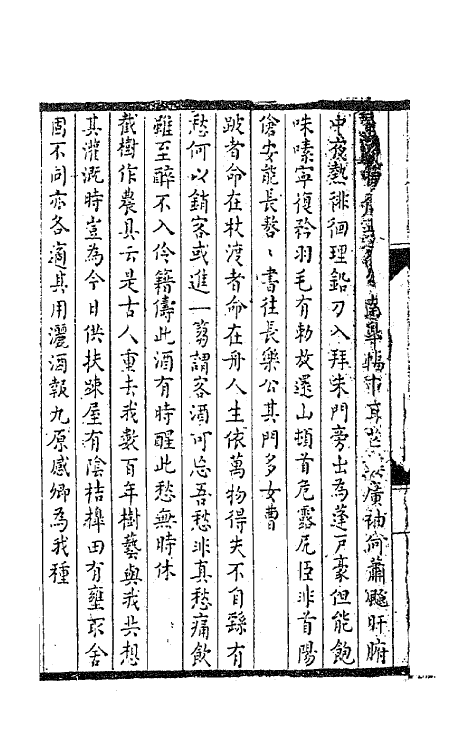 廣袖尚蕭颼肝腑
中夜熱徘徊理鉛刀入拜朱門旁出為蓬戶豪但能飽
咮嗉寧復矜羽毛有勅放還山頓首危露尻臣非首陽
傖安能長嗸〻書往長樂公其門多女曹
跛者命在杖渡者命在舟人生依萬物得失不自繇有
愁何以銷客或進一蒭謂客酒可忘吾愁非真愁痛飲
雖至醉不入伶籍儔此酒有時醒此愁無時休
截樹作農具云是古人重去我數百年樹藝與我共想
其灌溉時豈為今日供扶疎屋有陰桔橰田有壅取舍
固不同亦各適其用灑酒報九原感卿為我種